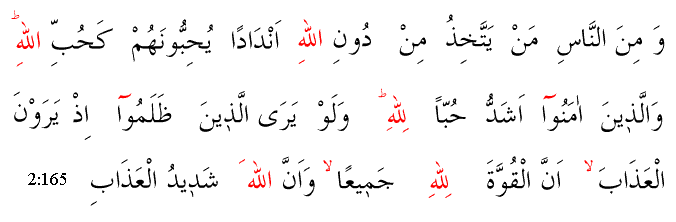 وَ مِنَ النَّاسِ مَنْ يَتَّخِذُ مِنْ دُونِ اللهِ اَنْدَادًا يُحِبُّونَهُمْ كَحُبِّ اللهِ ؕ
وَالَّذ۪ينَ اٰمَنُوٓا اَشَدُّ حُبًّا لِلّٰهِ ؕ وَلَوْ يَرَى الَّذ۪ينَ ظَلَمُوٓا اِذْ يَرَوْنَ
الْعَذَابَ ۙ اَنَّ الْقُوَّةَ لِلّٰهِ جَم۪يعًا ۙ وَاَنَّ اللهَ شَد۪يدُ الْعَذَابِ 2:165